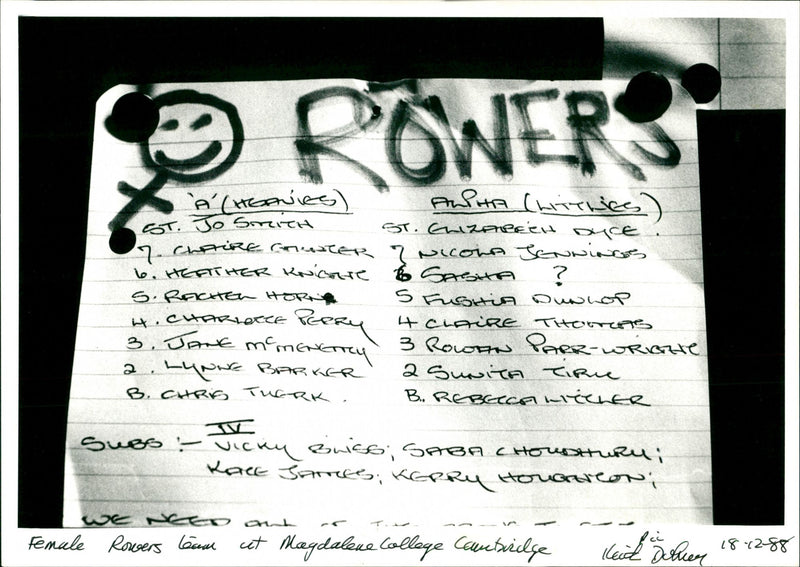 ROWERS
'A' (HEAVIES)
ST. JO SMITH
7. CLAIRE GUNTER
6. HEATHER KNIGHT
5. RACHEL HORN
4. CHARLOTTE PERRY
3. JANE McMENEMY
2. LYNNE BARKER
B. CHRIS TUERK.
ALPHA (LITTLIES)
ST. ELIZABETH DYCE.
7 NICOLA JENNINGS
6 SASHA ?
5 FUSHIA DUNLOP
4 CLAIRE THOMAS
3 ROWAN PARR-WRIGHT
2 SUNITA
B. REBECCA LITTLER
IV
SUBS :- VICKY BLISS; SABA CHOUDHURY;
KATE JAMES; KERRY HOUGHTON;
WE NEED ALL OF
Female Rowers team at Magdalene College Cambridge
Pic
Keith 18-12-88